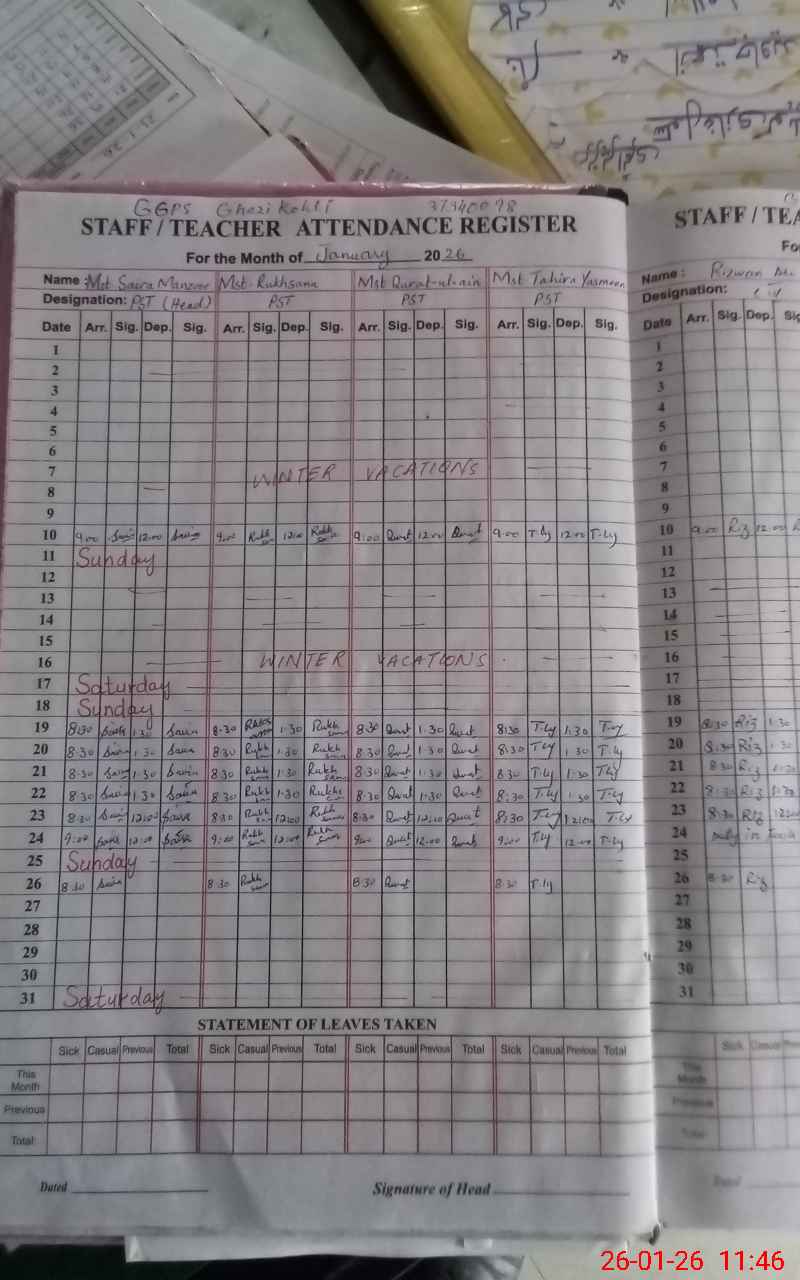 GGPS Ghazi Kohli 37340098
STAFF / TEACHER ATTENDANCE REGISTER
For the Month of January 2026
Name : Mst Saira Manzoor Mst. Rukhsana Mst Qurat-ul-ain Mst Tahira Yasmeen
Designation: PST (Head) PST PST PST
Date Arr. Sig. Dep. Sig. Arr. Sig. Dep. Sig. Arr. Sig. Dep. Sig. Arr. Sig. Dep. Sig.
1
2
3
4
5
6
7 WINTER VACATIONS
8
9
10 9:00 Saira 12:00 Saira 9:00 Rukhsana 12:00 Rukhsana 9:00 Qurat 12:00 Qurat 9:00 T-ly 12:00 T-ly
11 Sunday
12
13
14
15
16 WINTER VACATIONS
17 Saturday
18 Sunday
19 8:30 Saira 1:30 Saira 8:30 1:30 8:30 Qurat 1:30 Qurat 8:30 T-ly 1:30 T-ly
20 8:30 Saira 1:30 Saira 8:30 Rukhsana 1:30 Rukhsana 8:30 Qurat 1:30 Qurat 8:30 T-ly 1:30 T-ly
21 8:30 Saira 1:30 Saira 8:30 Rukhsana 1:30 Rukhsana 8:30 Qurat 1:30 Qurat 8:30 T-ly 1:30 T-ly
22 8:30 Saira 1:30 Saira 8:30 Rukhsana 1:30 Rukhsana 8:30 Qurat 1:30 Qurat 8:30 T-ly 1:30 T-ly
23 8:30 Saira 12:00 Saira 8:30 Rukhsana 12:00 Rukhsana 8:30 Qurat 12:00 Qurat 8:30 T-ly 12:00 T-ly
24 9:00 Saira 12:00 Saira 9:00 Rukhsana 12:00 Rukhsana 9:00 Qurat 12:00 Qurat 9:00 T-ly 12:00 T-ly
25 Sunday
26 8:30 Saira 8:30 Rukhsana 8:30 Qurat 8:30 T-ly
27
28
29
30
31 Saturday
STATEMENT OF LEAVES TAKEN
Sick Casual Previous Total Sick Casual Previous Total Sick Casual Previous Total Sick Casual Previous Total
This Month
Previous
Total:
Dated Signature of Head
STAFF / TEA
Fo
Name : Rizwan
Designation:
Date Arr. Sig. Dep. Sig
1
2
3
4
5
6
7
8
9
10 9:00 Riz 12:00
11
12
13
14
15
16
17
18
19 8:30 Riz 1:30
20 8:30 Riz 1:30
21 8:30 Riz 1:30
22 8:30 Riz 1:30
23 8:30 Riz 12:00
24
25
26 8:30 Riz
27
28
29
30
31
Sick Casual
This Month
Previous
Total:
Dated
26-01-26 11:46